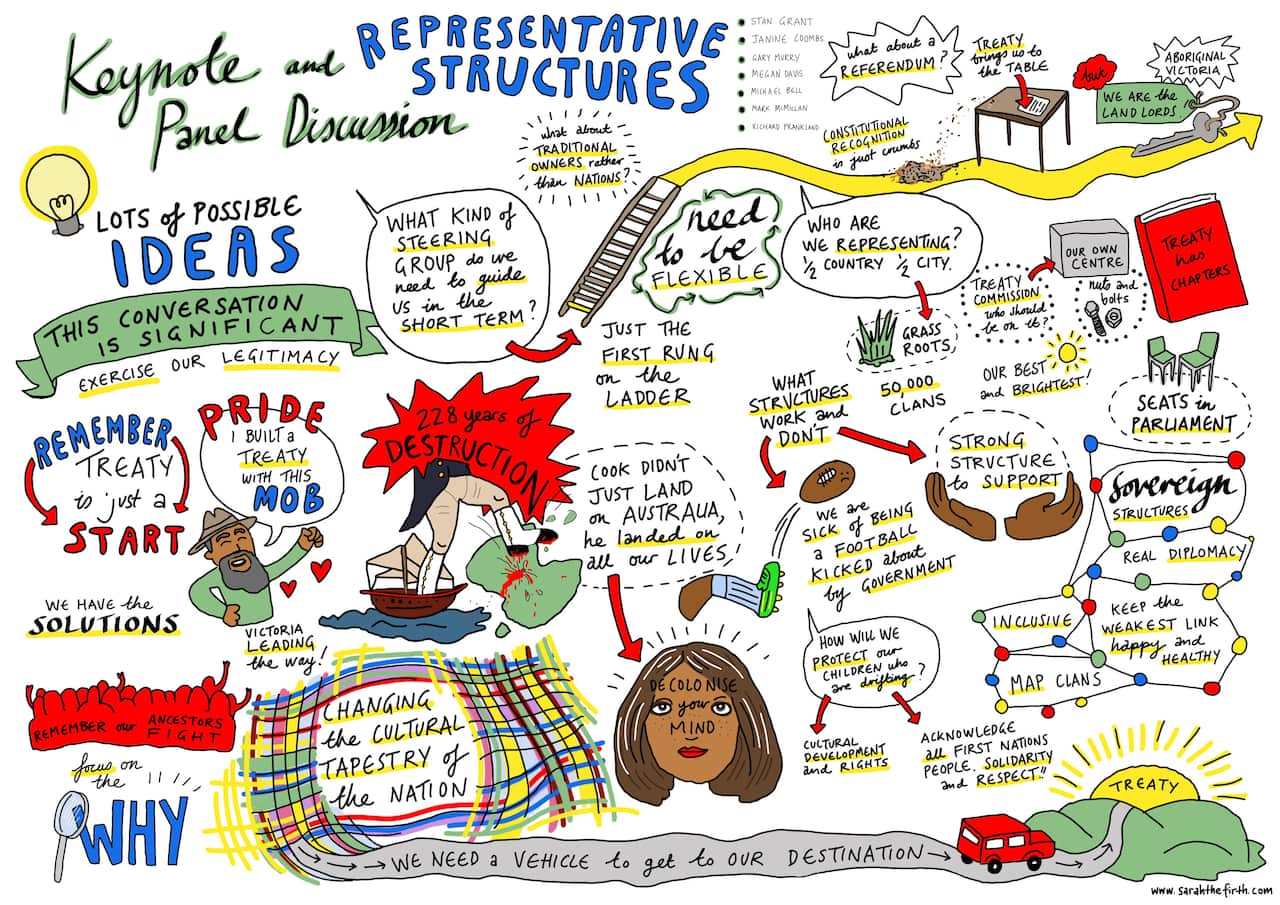 Keynote and
Panel Discussion
REPRESENTATIVE
STRUCTURES
STAN GRANT
JANINE COOMBS
GARY MURRY
MEGAN DAVIS
MICHAEL BELL
MARK McMILLAN
RICHARD FRANKLAND
what about a
REFERENDUM?
TREATY
brings us to
the TABLE
but
ABORIGINAL
VICTORIA
WE ARE the
LAND LORDS!
CONSTITUTIONAL
RECOGNITION
is just crumbs
what about
TRADITIONAL
OWNERS rather
than NATIONS?
LOTS of POSSIBLE
IDEAS
THIS CONVERSATION
IS SIGNIFICANT
EXERCISE OUR LEGITIMACY
WHAT KIND of
STEERING
GROUP do we
need to guide
US in the
SHORT TERM?
need
to be
FLEXIBLE
JUST THE
FIRST RUNG
on the
LADDER
WHO ARE
WE REPRESENTING?
½ COUNTRY ½ CITY.
GRASS
ROOTS
50,000
CLANS
TREATY
COMMISSION
who should
be on it?
OUR OWN
CENTRE
nuts and
bolts
TREATY
has
CHAPTERS
OUR BEST
and BRIGHTEST!
SEATS in
PARLIAMENT
REMEMBER
TREATY
is just a
START
PRIDE
I BUILT a
TREATY
WITH THIS
MOB
VICTORIA
LEADING
the way!
WE HAVE the
SOLUTIONS
228 years of
DESTRUCTION
COOK DIDN'T
JUST LAND
on AUSTRALIA,
he landed on
all our LIVES
WHAT
STRUCTURES
WORK and
DON'T
WE are
SICK of BEING
a FOOTBALL
KICKED about
by GOVERNMENT
STRONG
STRUCTURE
to SUPPORT
Sovereign
STRUCTURES
REAL DIPLOMACY
INCLUSIVE
KEEP the
WEAKEST LINK
happy and
HEALTHY
MAP CLANS
REMEMBER our ANCESTORS
FIGHT
focus on
the
WHY
CHANGING
the CULTURAL
TAPESTRY of
the NATION
DECOLONISE
your
MIND
HOW WILL WE
PROTECT our
CHILDREN who
are drifting?
CULTURAL
DEVELOPMENT
and RIGHTS
ACKNOWLEDGE
all FIRST NATIONS
PEOPLE. SOLIDARITY
and RESPECT"
WE NEED a VEHICLE to get to OUR DESTINATION
TREATY
www.sarahthefirth.com